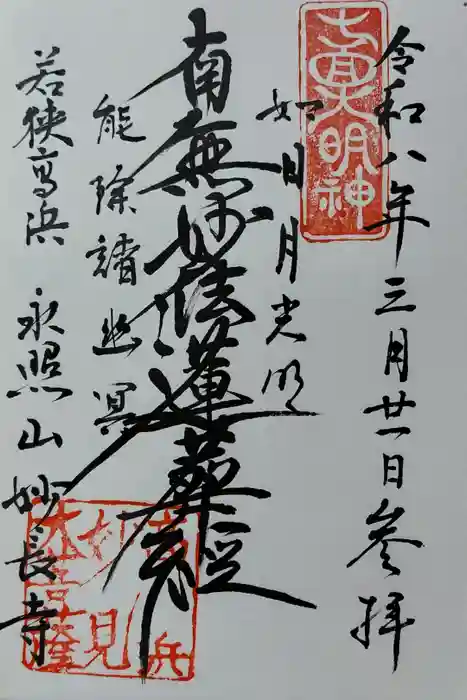 令和八年三月廿一日参拝
如日月光明
南無妙法蓮華経
能除諸幽冥
若狭高浜 永照山 妙長寺
明神
妙見